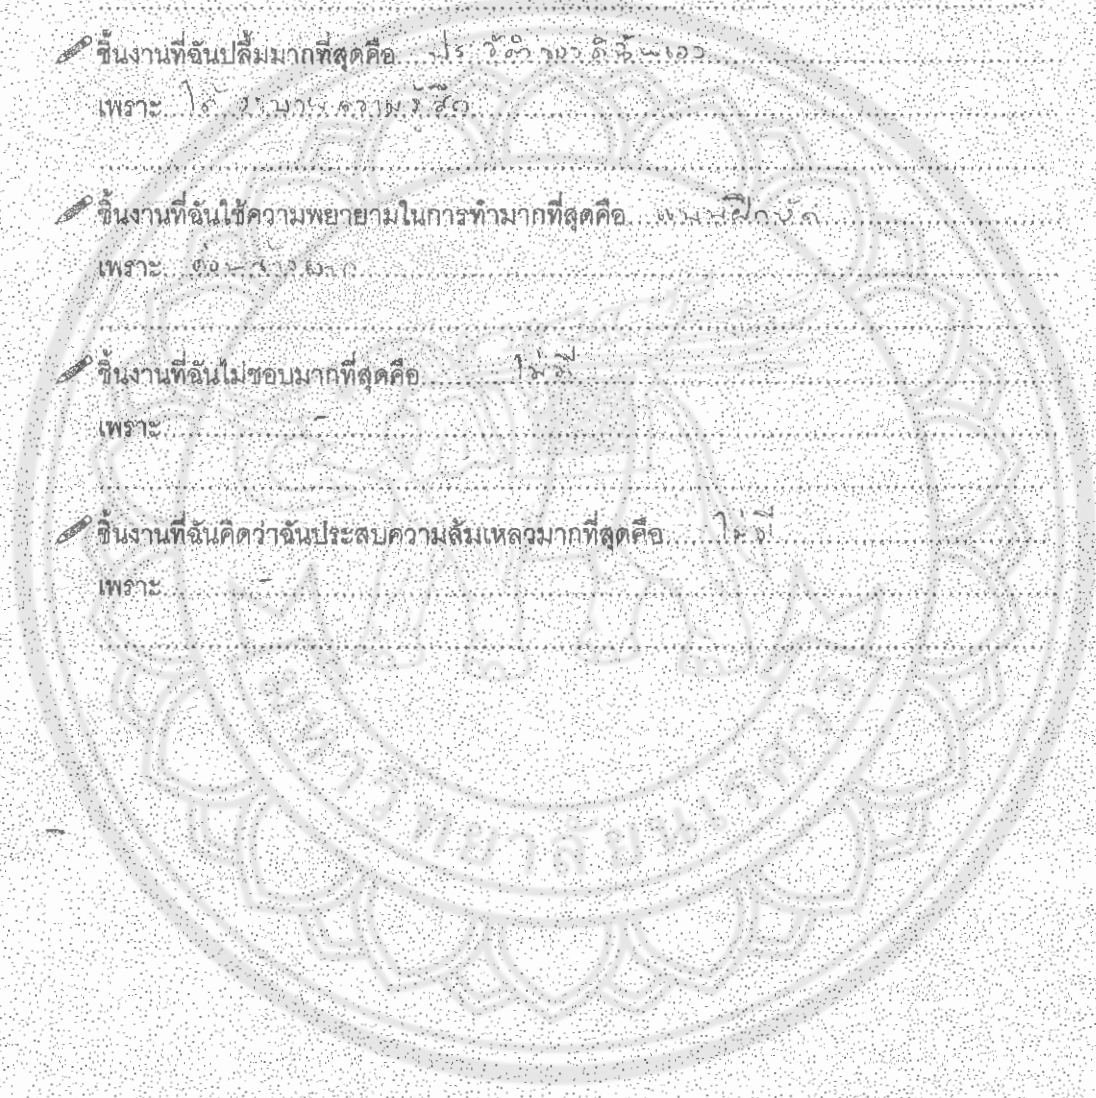 ชิ้นงานที่ฉันปลื้มมากที่สุดคือ ประวัติของดิฉันเอง
เพราะ ได้ ความรู้สึก
ชิ้นงานที่ฉันใช้ความพยายามในการทำมากที่สุดคือ แบบฝึกหัด
เพราะ
ชิ้นงานที่ฉันไม่ชอบมากที่สุดคือ ไม่มี
เพราะ -
ชิ้นงานที่ฉันคิดว่าฉันประสบความล้มเหลวมากที่สุดคือ ไม่มี
เพราะ -
มหาวิทยาลัยนเรศวร